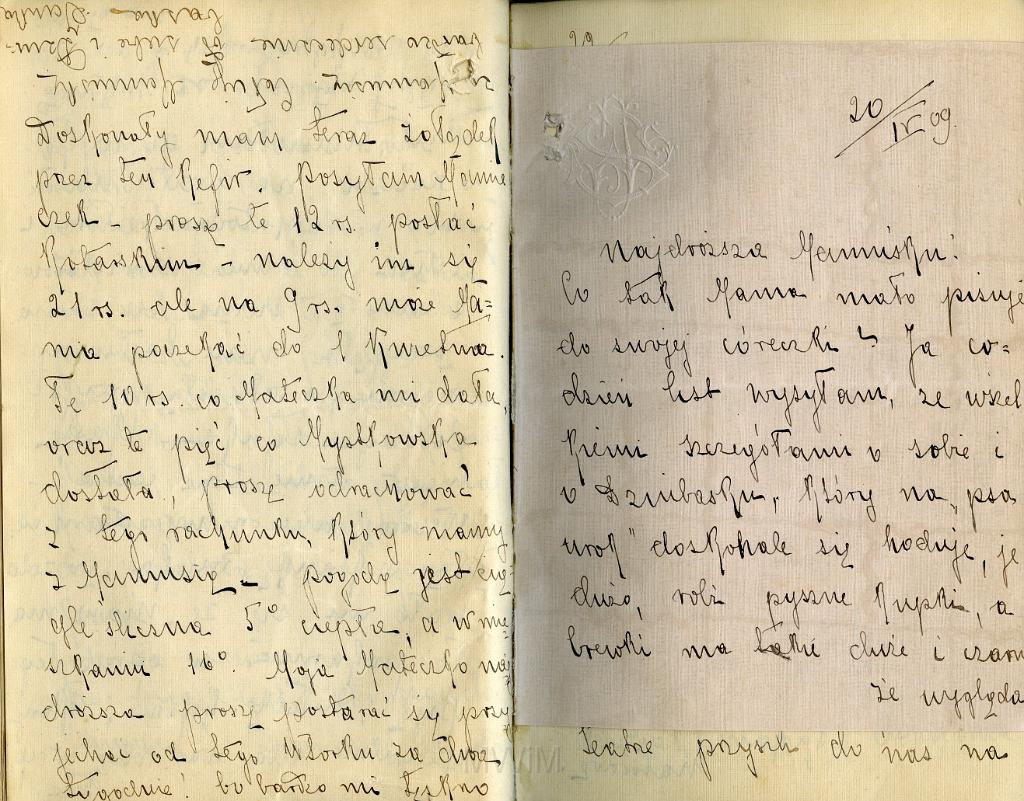 Doskonały mam teraz żołądek
prez ten Kefir. Posyłam Mamie
czek – proszę te 12 rs. posłać
Kotarskim – należy im się
21 rs. ale na 9 rs. może Ma=
mia poczekać do 1 Kwietnia.
Te 10 rs. co Mateczka mi dała,
oraz te pięć co Mystkowska
dostała, proszę odrachować
z tego rachunku, który mamy
z Mamusią – pogodę jest cią
gle śliczna 5° ciepła, a w mie
szkaniu 16°. Moja Mateczko naj
droższa proszę postarać się przy
jechać od tego Wtorku za dwa
tygodnie! bo bardzo mi tęskno
za Mamusią całuję Mamusię
bardzo serdecznie od siebie i
20/IV 09.
Najdroższa Mamuśku!
Co tak Mama mało pisuje
do swojej córeczki? Ja co=
dzień list wysyłam, ze wszel
kiemi szczegółami o sobie i
o Dziubasku, który na „psa
urok" doskonale się hoduje, je
dużo, robi pyszne kupki, a
brewki ma takie duże i czarn
że wygląda
teatrze przysık do nas na